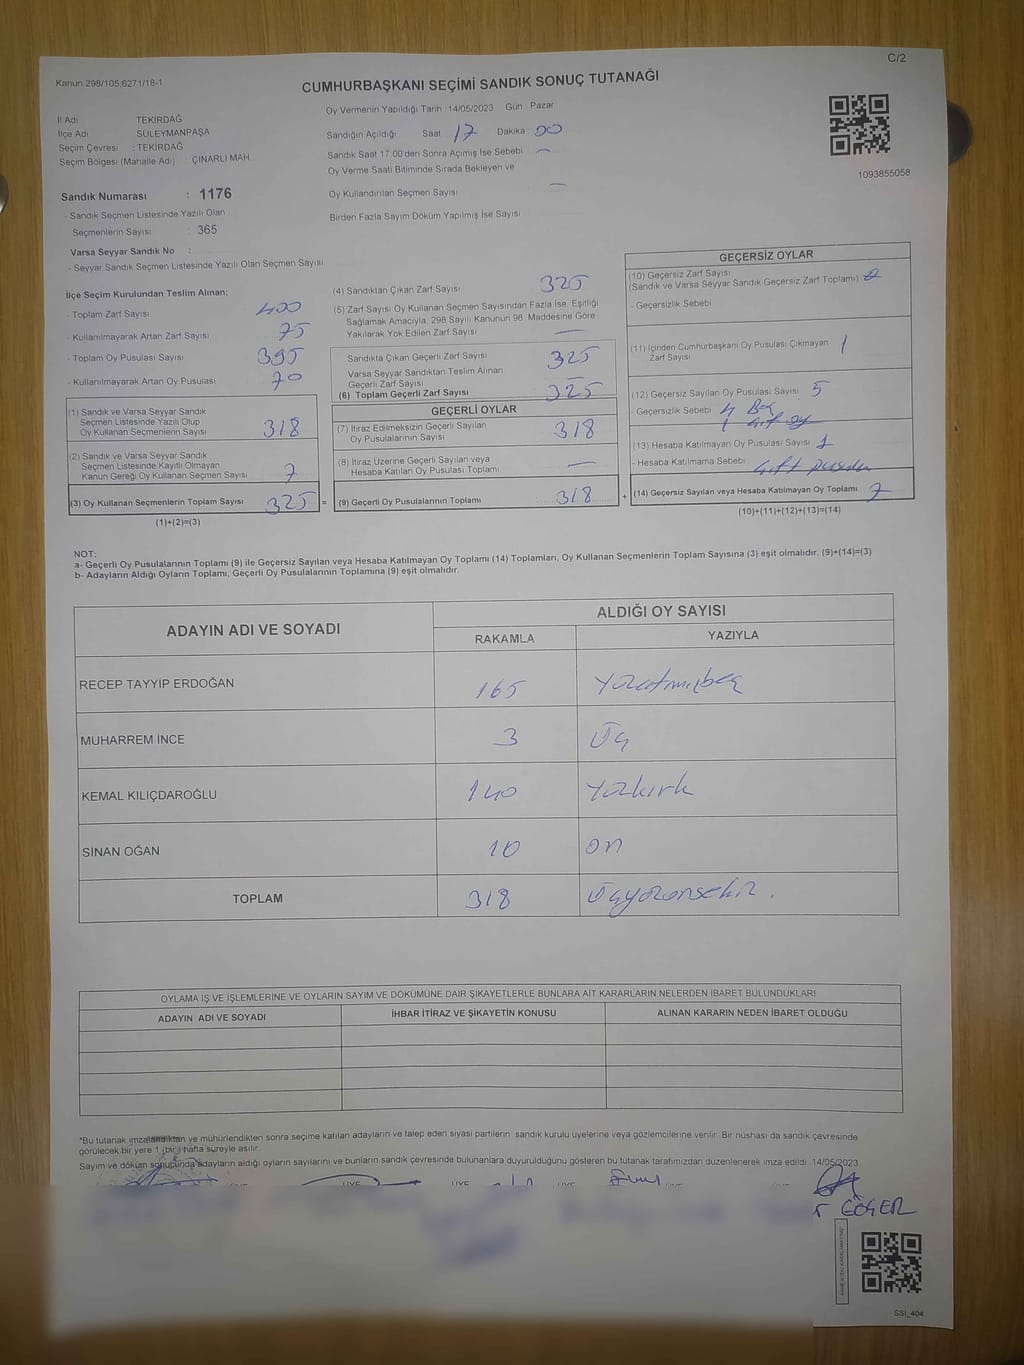 C/2
Kanun 298/105;6271/18-1
CUMHURBAŞKANI SEÇİMİ SANDIK SONUÇ TUTANAĞI
İl Adı TEKİRDAĞ
İlçe Adı SÜLEYMANPAŞA
Seçim Çevresi : TEKİRDAĞ
Seçim Bölgesi (Mahalle Adı) ÇINARLI MAH.
Sandık Numarası : 1176
- Sandık Seçmen Listesinde Yazılı Olan
Seçmenlerin Sayısı : 365
Varsa Seyyar Sandık No :
- Seyyar Sandık Seçmen Listesinde Yazılı Olan Seçmen Sayısı
Oy Vermenin Yapıldığı Tarih : 14/05/2023 Gün Pazar
Sandığın Açıldığı Saat 17 Dakika 00
Sandık Saat 17:00'den Sonra Açımış İse Sebebi —
Oy Verme Saati Bitiminde Sırada Bekleyen ve
Oy Kullandırılan Seçmen Sayısı —
Birden Fazla Sayım Döküm Yapılmış İse Sayısı
1093855058
İlçe Seçim Kurulundan Teslim Alınan;
- Toplam Zarf Sayısı 400
- Kullanılmayarak Artan Zarf Sayısı 75
- Toplam Oy Pusulası Sayısı 395
- Kullanılmayarak Artan Oy Pusulası 70
(1) Sandık ve Varsa Seyyar Sandık
Seçmen Listesinde Yazılı Olup
Oy Kullanan Seçmenlerin Sayısı 318
(2) Sandık ve Varsa Seyyar Sandık
Seçmen Listesinde Kayıtlı Olmayan
Kanun Gereği Oy Kullanan Seçmen Sayısı 7
(3) Oy Kullanan Seçmenlerin Toplam Sayısı 325 =
(1)+(2)=(3)
(4) Sandıktan Çıkan Zarf Sayısı 325
(5) Zarf Sayısı Oy Kullanan Seçmen Sayısından Fazla İse, Eşitliği
Sağlamak Amacıyla, 298 Sayılı Kanunun 98. Maddesine Göre
Yakılarak Yok Edilen Zarf Sayısı —
Sandıkta Çıkan Geçerli Zarf Sayısı 325
Varsa Seyyar Sandıktan Teslim Alınan
Geçerli Zarf Sayısı
(6) Toplam Geçerli Zarf Sayısı 325
GEÇERLİ OYLAR
(7) İtiraz Edilmeksizin Geçerli Sayılan
Oy Pusulalarının Sayısı 318
(8) İtiraz Üzerine Geçerli Sayılan veya
Hesaba Katılan Oy Pusulası Toplamı —
(9) Geçerli Oy Pusulalarının Toplamı 318 +
GEÇERSİZ OYLAR
(10) Geçersiz Zarf Sayısı
(Sandık ve Varsa Seyyar Sandık Geçersiz Zarf Toplamı)
- Geçersizlik Sebebi
(11) İçinden Cumhurbaşkanı Oy Pusulası Çıkmayan
Zarf Sayısı 1
(12) Geçersiz Sayılan Oy Pusulası Sayısı 5
- Geçersizlik Sebebi 4 Boş
1 çift oy
(13) Hesaba Katılmayan Oy Pusulası Sayısı 1
- Hesaba Katılmama Sebebi çift pusula
(14) Geçersiz Sayılan veya Hesaba Katılmayan Oy Toplamı 7
(10)+(11)+(12)+(13)=(14)
NOT:
a- Geçerli Oy Pusulalarının Toplamı (9) ile Geçersiz Sayılan veya Hesaba Katılmayan Oy Toplamı (14) Toplamları, Oy Kullanan Seçmenlerin Toplam Sayısına (3) eşit olmalıdır. (9)+(14)=(3)
b- Adayların Aldığı Oyların Toplamı, Geçerli Oy Pusulalarının Toplamına (9) eşit olmalıdır.
ADAYIN ADI VE SOYADI ALDIĞI OY SAYISI
RAKAMLA YAZIYLA
RECEP TAYYİP ERDOĞAN 165 Yüzatmışbeş
MUHARREM İNCE 3 Üç
KEMAL KILIÇDAROĞLU 140 Yüzkırk
SİNAN OĞAN 10 on
TOPLAM 318 Üçyüzonsekiz.
OYLAMA İŞ VE İŞLEMLERİNE VE OYLARIN SAYIM VE DÖKÜMÜNE DAİR ŞİKAYETLERLE BUNLARA AİT KARARLARIN NELERDEN İBARET BULUNDUKLARI
ADAYIN ADI VE SOYADI İHBAR İTİRAZ VE ŞİKAYETİN KONUSU ALINAN KARARIN NEDEN İBARET OLDUĞU
*Bu tutanak imzalandıktan ve mühürlendikten sonra seçime katılan adayların ve talep eden siyasi partilerin sandık kurulu üyelerine veya gözlemcilerine verilir. Bir nüshası da sandık çevresinde
görülecek bir yere 1 (bir) hafta süreyle asılır.
Sayım ve döküm sonucunda adayların aldığı oyların sayılarını ve bunların sandık çevresinde bulunanlara duyurulduğunu gösteren bu tutanak tarafımızdan düzenlenerek imza edildi. 14/05/2023
ÜYE ÜYE ÜYE ÜYE
GÖÇER
SSİ_404